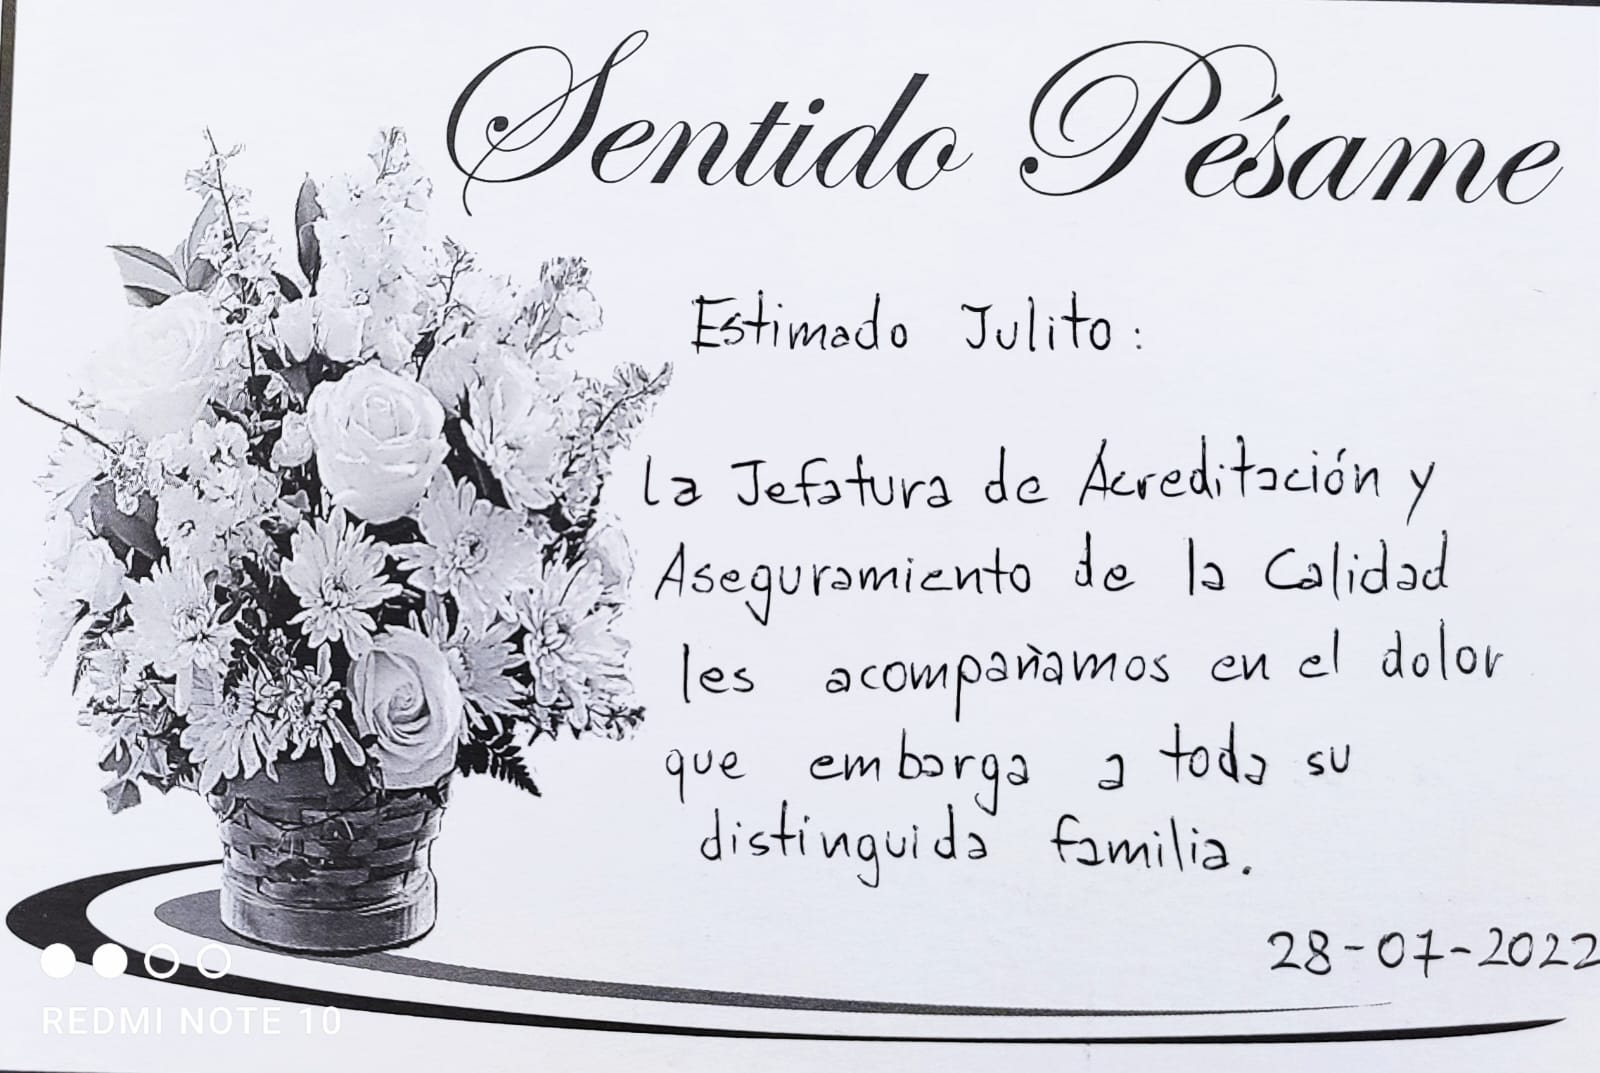 Sentido Pésame
Estimado Julito:
La Jefatura de Acreditación y
Aseguramiento de la Calidad
les acompañamos en el dolor
que embarga a toda su
distinguida familia.
28-07-2022
REDMI NOTE 10